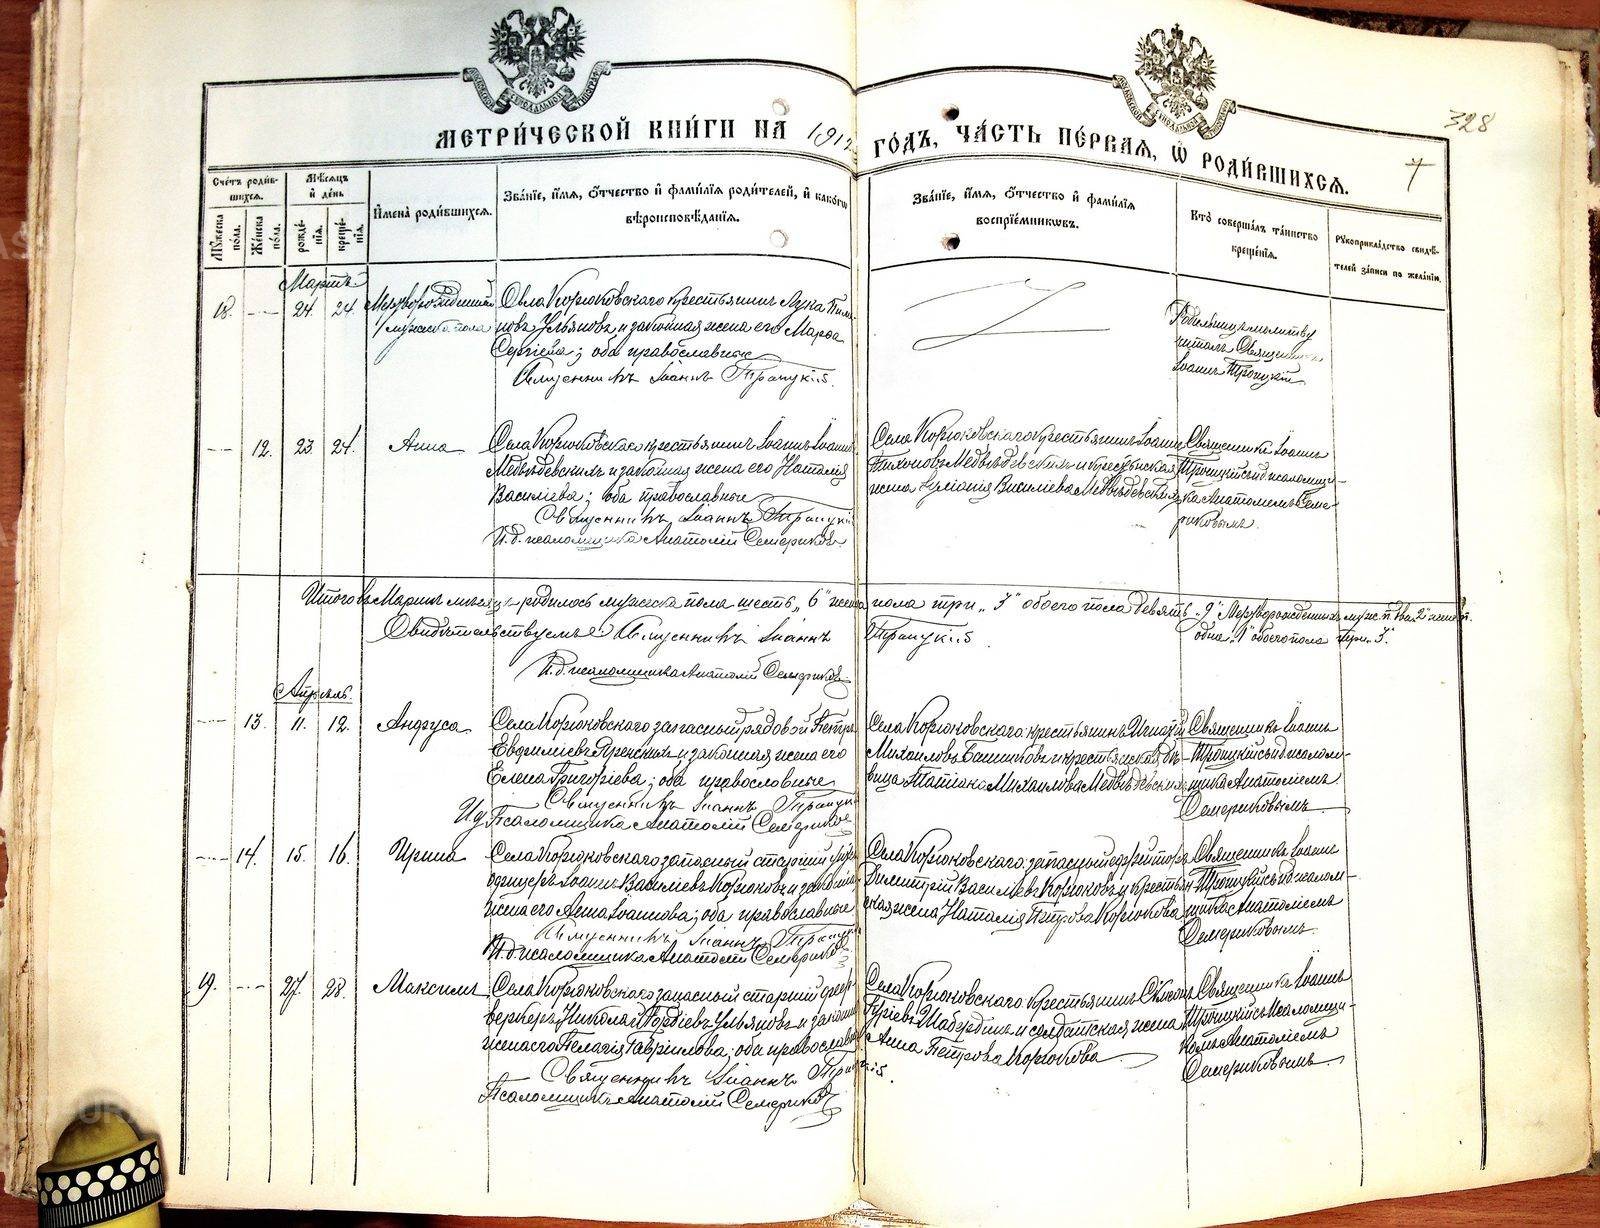 МЕТРИ́ЧЕСКОЙ КНИ́ГИ НА 1912 ГО́ДЪ, ЧА́СТЬ ПЕ́РВАЯ, Ѡ РОДИ́ВШИХСЯ.
328
7
Сче́тъ роди́вшихся.
Мѣ́сяцъ и день
Му́жеска пола.
Же́нска по́ла.
рожде́нія.
креще́нія.
Имена̀ роди́вшихся.
Зва́ніе, и́мя, о́тчество и фами́лія роди́телей, и како́гѡ вѣроисповѣ́данія.
Зва́ніе, и́мя, о́тчество и фами́лія воспрїе́мниковъ.
Кто̀ соверша́лъ та́инство креще́нія.
Рукоприкла́дство свидѣ́телей за́писи по жела́нію.
Мартъ
18. 24. 24. Мертворожденный мужска пола
Села Корюковскаго крестьянинъ Лука
новъ Ульяновъ и законная жена его Марѳа
Сергіева; оба православные
Священникъ Іоаннъ Троицкій.
Родильницѣ молитву
читалъ Священникъ
Іоаннъ Троицкій
12. 23. 24. Анна
Села Корюковскаго крестьянинъ Іоаннъ
Медвѣдевскихъ и законная жена его Наталія
Василіева; оба православные
Священникъ Іоаннъ Троицкій
И. д. псаломщика Анатолій Семериковъ
Села Корюковскаго крестьянинъ Іоаннъ
Тихоновъ Медвѣдевскихъ и крестьянская
жена Іуліанія Василіева Медвѣдевскихъ
Священникъ Іоаннъ
Троицкій съ и д псаломщи-
ка Анатоліемъ Семе-
риковымъ.
Итого въ Мартѣ мѣсяцѣ родилось мужска пола шесть „6" женска пола три „3" обоего пола девять „9" Мертворожденныхъ муж. п. два „2" жен. п.
одна „1" обоего пола три „3".
Свидѣтельствуемъ: Священникъ Іоаннъ Троицкій.
И. д. псаломщика Анатолій Семериковъ
Апрѣль.
13. 11. 12. Анфуса
Села Корюковскаго запасный рядовой Петръ
Евфиміевъ Яренскихъ и законная жена его
Елена Григоріева; оба православные
Священникъ Іоаннъ Троицкій
И д Псаломщика Анатолій Семериковъ
Села Корюковскаго крестьянинъ Игнатій
Михаиловъ и крестьянская дѣ-
вица Татіана Михаилова Медвѣдевскихъ
Священникъ Іоаннъ
Троицкій съ и д псалом-
щика Анатоліемъ
Семериковымъ.
14. 15. 16. Ирина
Села Корюковскаго запасный старшій унтеръ
офицеръ Іоаннъ Василіевъ Корюковъ и законная
жена его Анна Іоаннова; оба православные
Священникъ Іоаннъ Троицкій
И. д. псаломщика Анатолій Семериковъ
Села Корюковскаго запасный ефрейторъ
Димитрій Василіевъ Корюковъ и крестьян-
ская жена Наталія Петрова Корюкова
Священникъ Іоаннъ
Троицкій съ и д псалом-
щика Анатоліемъ
Семериковымъ.
19. 27. 28. Максимъ
Села Корюковскаго запасный старшій фейер-
веркеръ Николай Гордіевъ Ульяновъ и законная
жена его Пелагія Гавріилова; оба православные
Священникъ Іоаннъ Троицкій.
Псаломщикъ Анатолій Семериковъ
Села Корюковскаго крестьянинъ Симеонъ
Гуріевъ Шабердинъ и солдатская жена
Анна Петрова Корюкова
Священникъ Іоаннъ
Троицкій съ Псаломщи-
комъ Анатоліемъ
Семериковымъ.